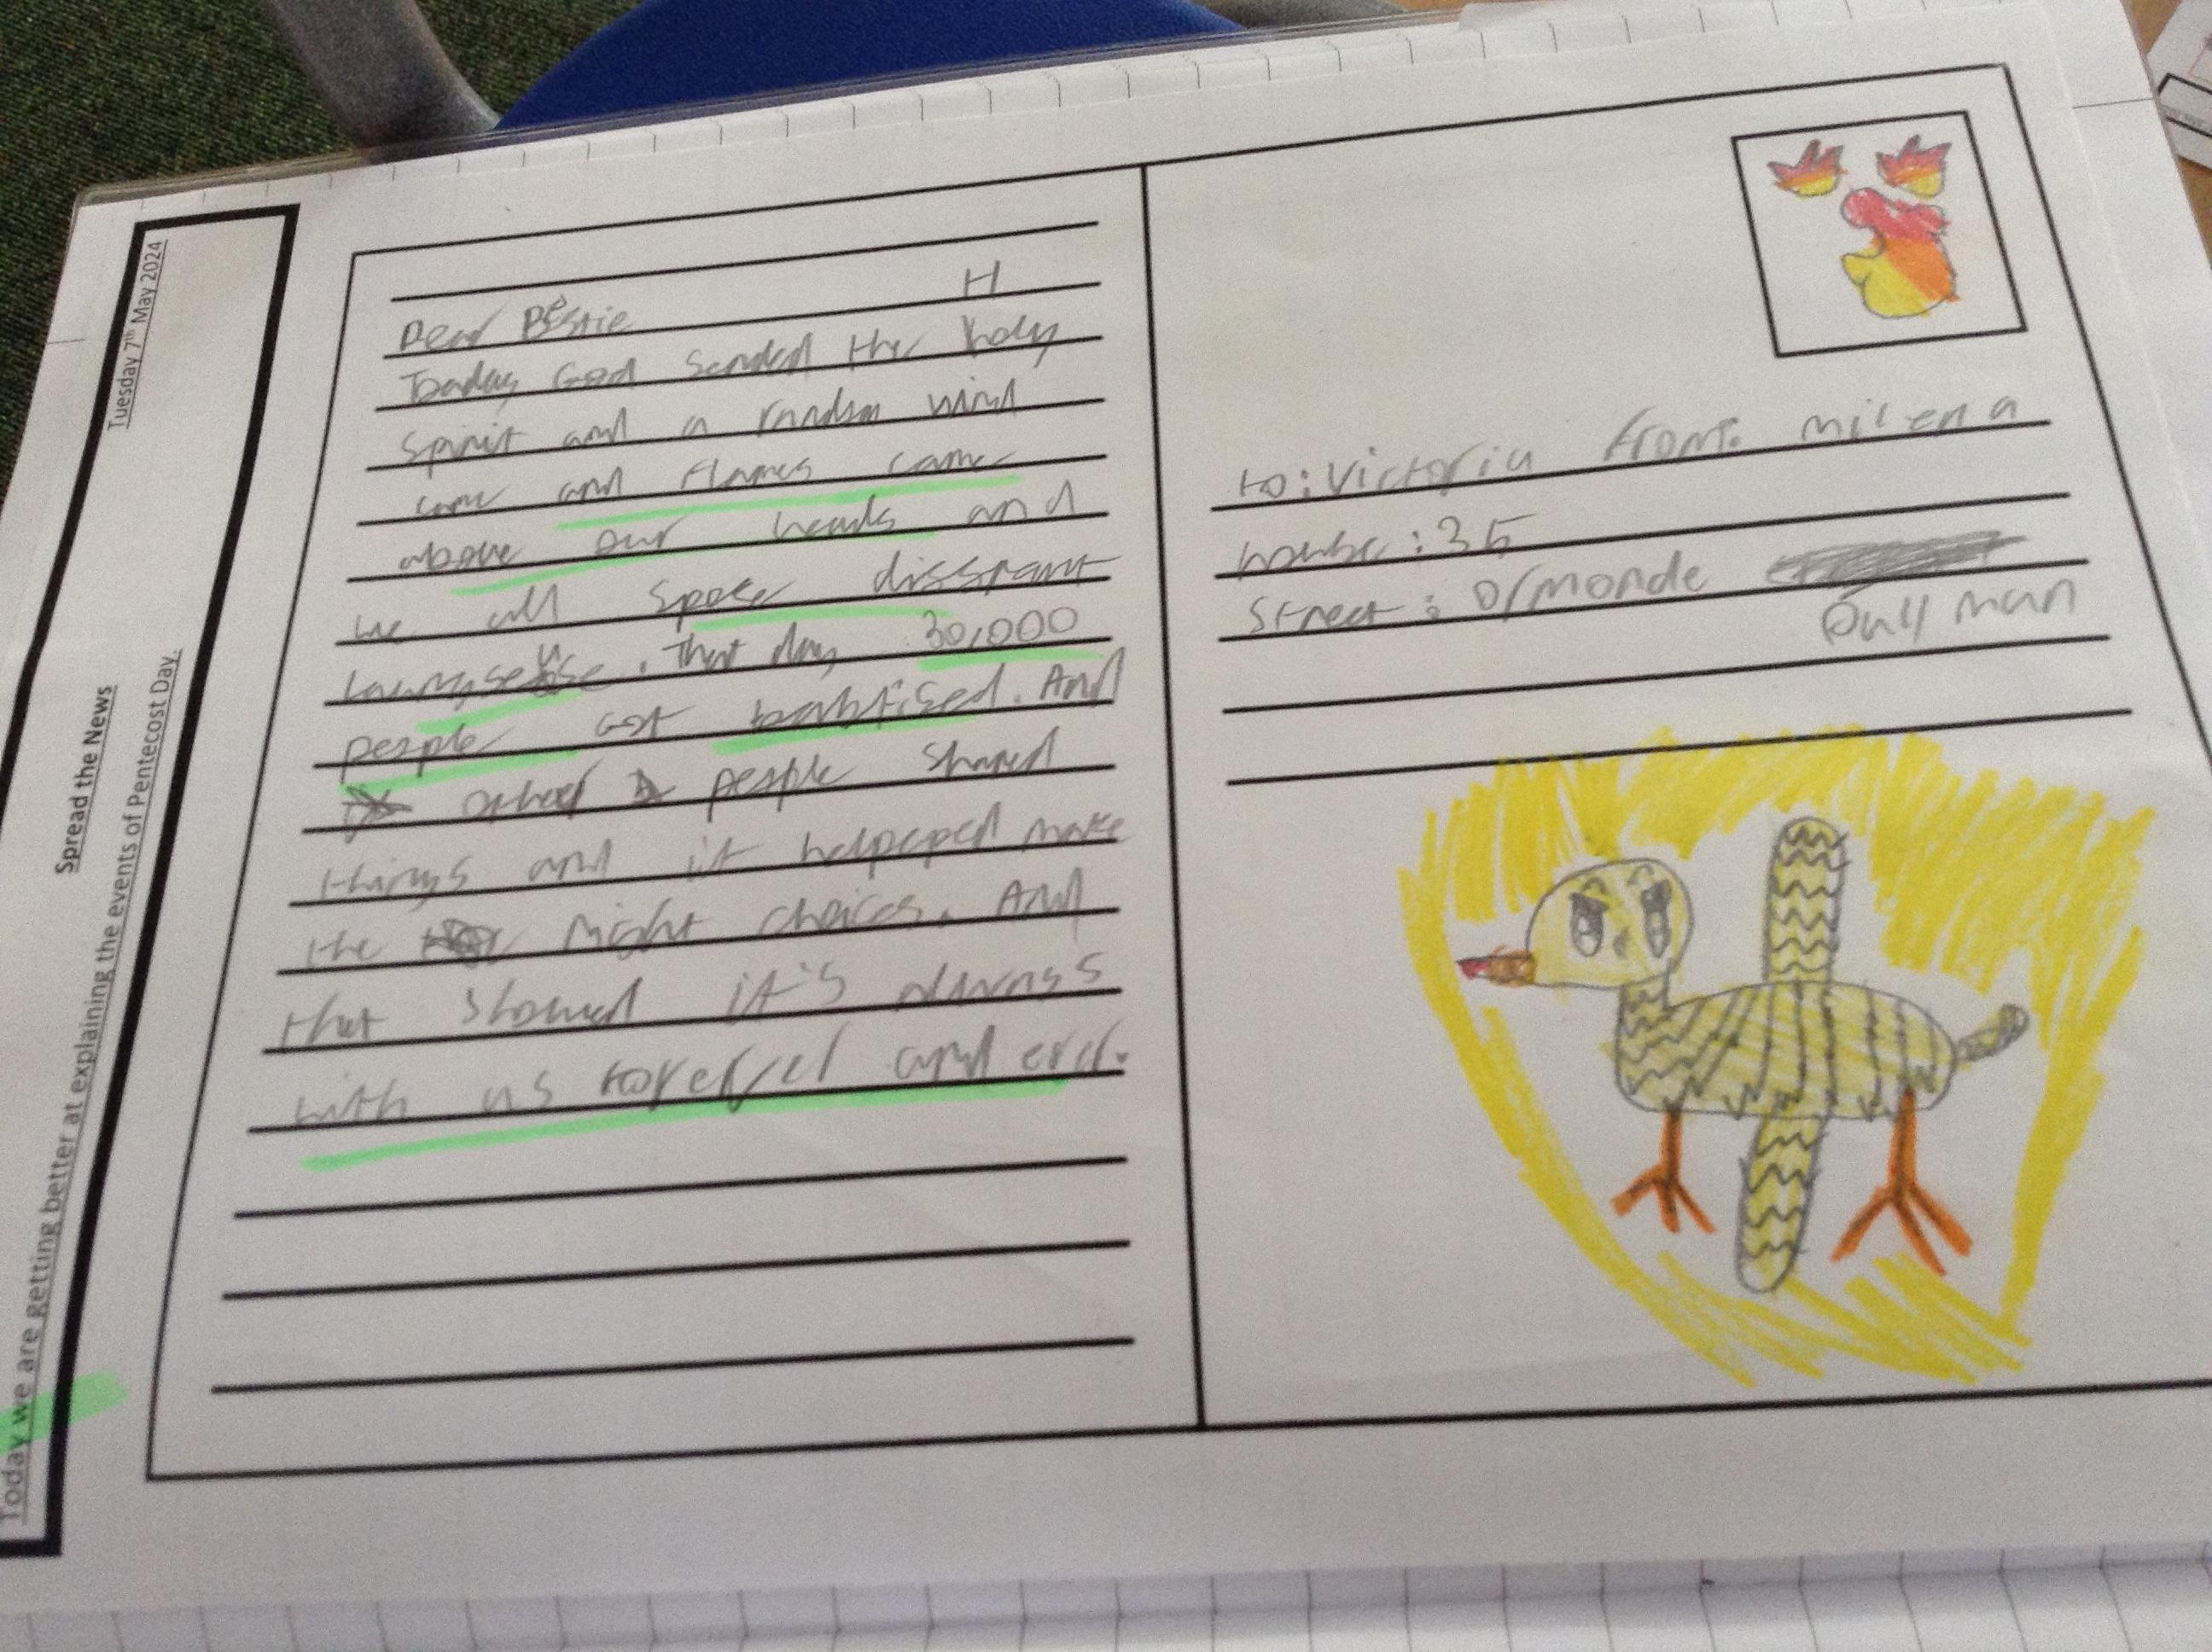 Tuesday 7th May 2024
Spread the News
Today we are getting better at explaining the events of Pentecost Day.
Dear Bestie
H
Today God sended the holy
spirit and a random wind
came and flames came
above our heads and
we all spoke
. That day 30,000
people got babtised. And
other people shared
things and it helpeped make
the right choices. And
that showed it's always
with us and
to: Victoria from: milena
house: 35
Street: Ormonde
Pullman